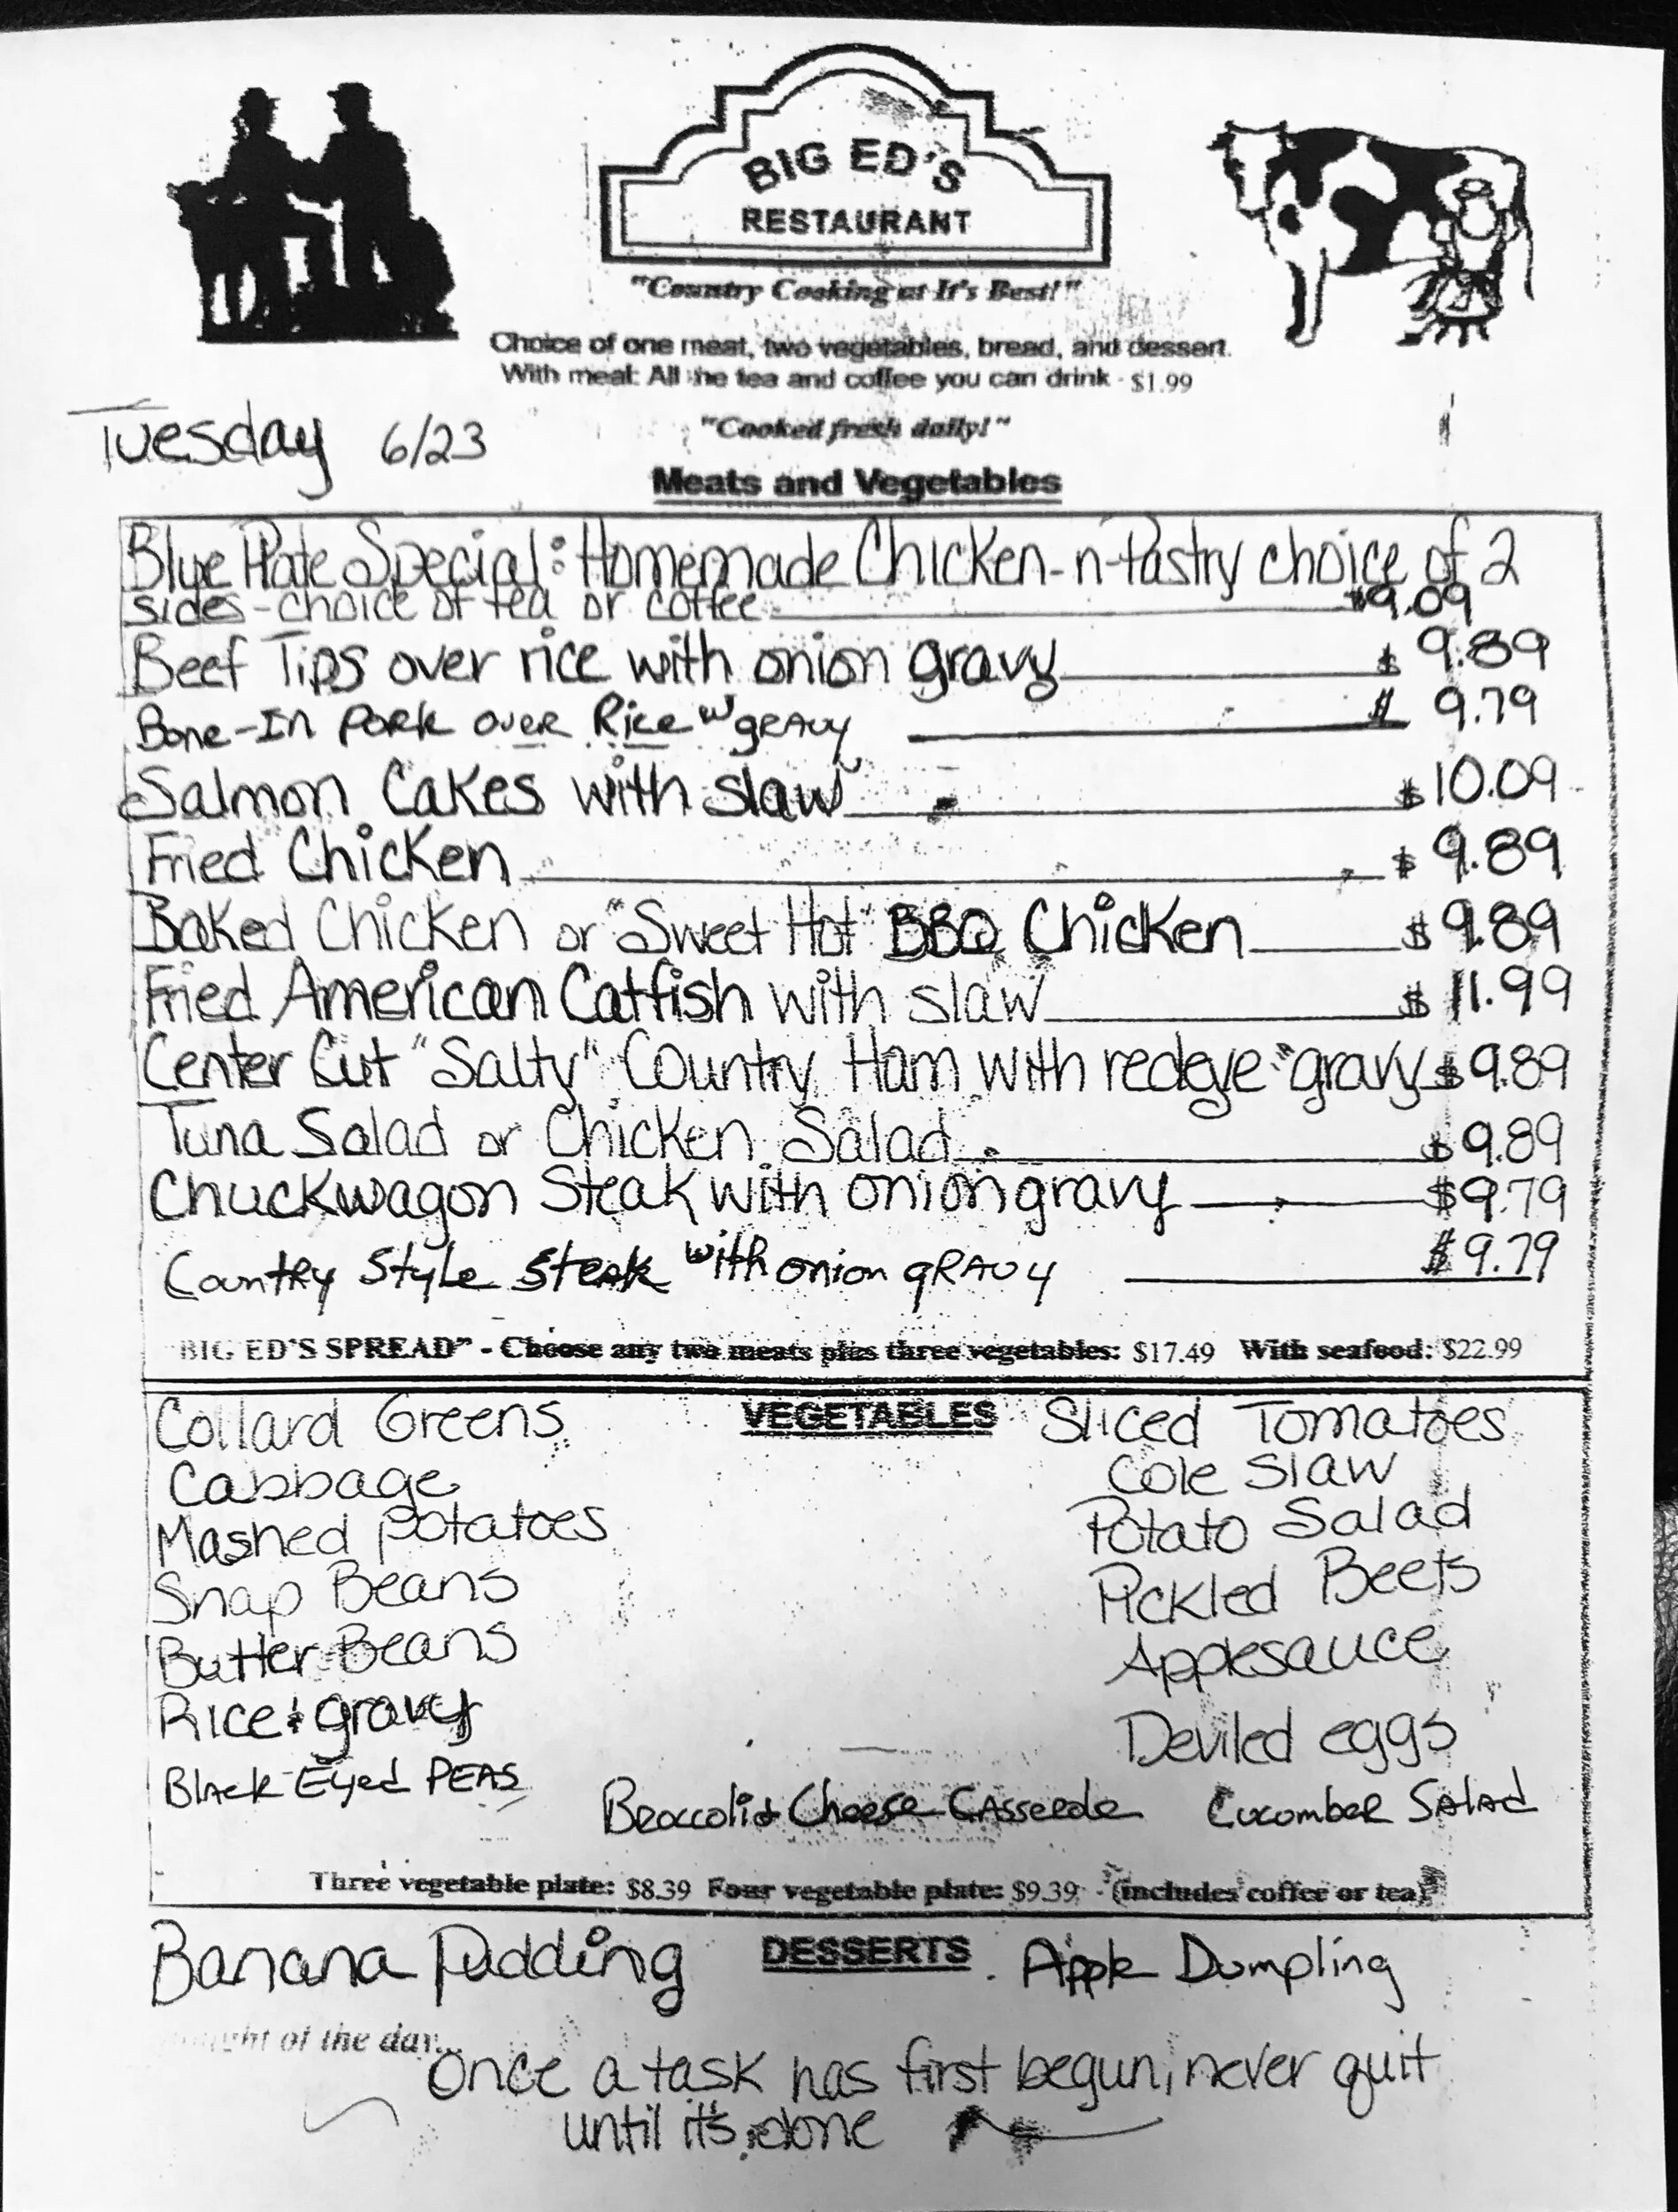 BIG ED'S
RESTAURANT
"Country Cooking at It's Best!"
Choice of one meat, two vegetables, bread, and dessert.
With meal: All the tea and coffee you can drink - $1.99
Tuesday 6/23
"Cooked fresh daily!"
Meats and Vegetables
Blue Plate Special: Homemade Chicken-n-Pastry choice of 2
sides - choice of tea or coffee $9.09
Beef Tips over rice with onion gravy $9.89
Bone-In Pork over Rice w gravy $9.79
Salmon Cakes with slaw $10.09
Fried Chicken $9.89
Baked Chicken or "Sweet Hot" BBQ Chicken $9.89
Fried American Catfish with slaw $11.99
Center Cut "Salty" Country Ham with redeye "gravy $9.89
Tuna Salad or Chicken Salad $9.89
Chuckwagon Steak with onion gravy $9.79
Country Style Steak with onion gravy $9.79
"BIG ED'S SPREAD" - Choose any two meats plus three vegetables: $17.49 With seafood: $22.99
VEGETABLES
Collard Greens Sliced Tomatoes
Cabbage Cole Slaw
Mashed Potatoes Potato Salad
Snap Beans Pickled Beets
Butter Beans Applesauce
Rice & gravy Deviled eggs
Black Eyed Peas Broccoli & Cheese Casserole Cucumber Salad
Three vegetable plate: $8.39 Four vegetable plate: $9.39 - (includes coffee or tea)
DESSERTS
Banana Pudding Apple Dumpling
of the day...
Once a task has first begun, never quit
until it's done